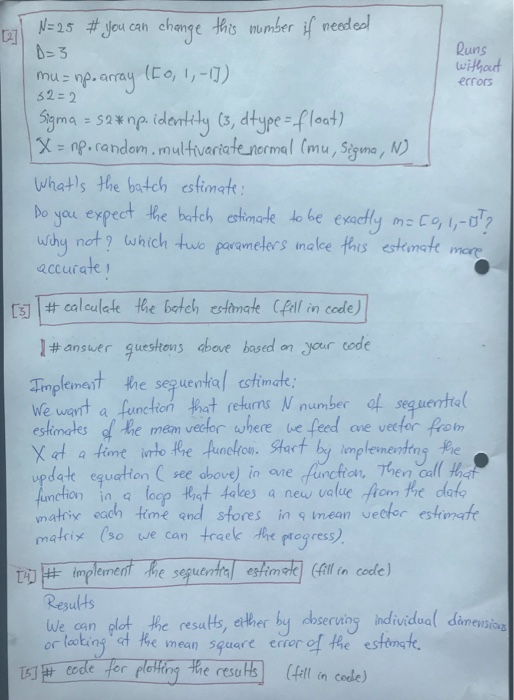 [2] N=25 # you can change this number if needed
D=3
mu = np.array ([0, 1, -1])
s2=2
Sigma = s2*np.identity (3, dtype=float)
X = np.random.multivariate_normal (mu, Sigma, N)
Runs
without
errors
What's the batch estimate:
Do you expect the batch estimate to be exactly m= [0, 1, -1]ᵀ?
Why not? Which two parameters make this estemate more
accurate!
[3] # calculate the batch estimate (fill in code)
# answer questions above based on your code
Implement the sequential estimate:
We want a function that returns N number of sequential
estimates of the mean vector where we feed one vector from
X at a time into the function. Start by implementing the
update equation (see above) in one function, Then call that
function in a loop that takes a new value from the data
matrix each time and stores in a mean vector estimate
matrix (so we can track the progress).
[4] # implement the sequential estimate (fill in code)
Results
We can plot the results, either by observing individual dimensions
or looking at the mean square error of the estimate.
[5] # code for plotting the results (fill in code)